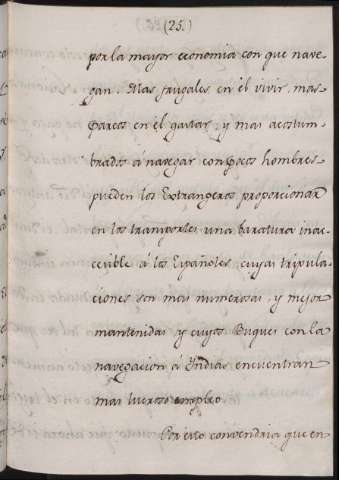 (25.)
por la mayor economia con que nave-
gan. Mas frugales en el vivir, mas
parcos en el gastar, y mas acostum-
brados á navegar con pocos hombres
pueden los Extrangeros proporcionar
en los transportes una baratura inac-
cecible á los Españoles, cuyas tripula-
ciones son mas numerosas, y mejor
mantenidas y cuyos Buques con la
navegacion á Indias encuentran
mas lucroso empleo
Por esto convendria que en